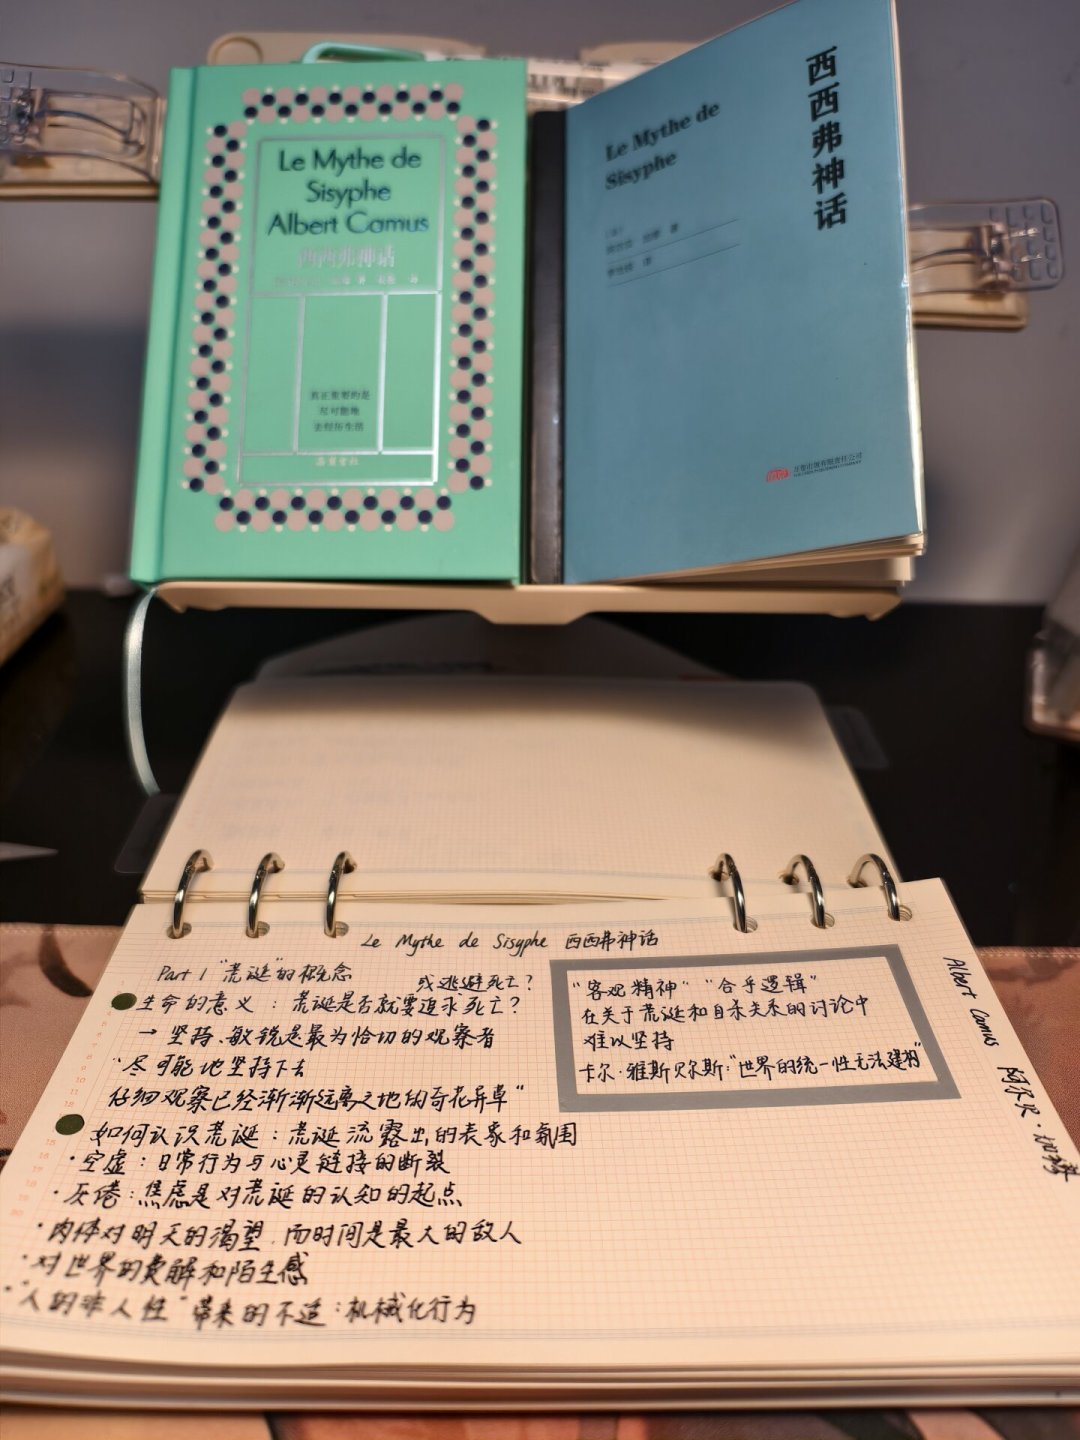 Le Mythe de
Sisyphe
Albert Camus
西西弗神话
真正重要的是
尽可能地
去经历生活
Le Mythe de
Sisyphe
西西弗神话
万卷出版有限责任公司
Le Mythe de Sisyphe 西西弗神话
Part 1 "荒诞"的概念
或逃避死亡？
生命的意义：荒诞是否就要追求死亡？
→ 坚持、敏锐是最为恰切的观察者
"尽可能地坚持下去
仔细观察已经渐渐远离之地的奇花异草"
如何认识荒诞：荒诞流露出的表象和氛围
·空虚：日常行为与心灵链接的断裂
·灰倦：焦虑是对荒诞的认知的起点
·肉体对明天的渴望，而时间是最大的敌人
·对世界的费解和陌生感
·"人的非人性"带来的不适：机械化行为
"客观精神" "合乎逻辑"
在关于荒诞和自杀关系的讨论中
难以坚持
卡尔·雅斯贝尔斯："世界的统一性无法建构"
Albert Camus 阿尔贝·加缪